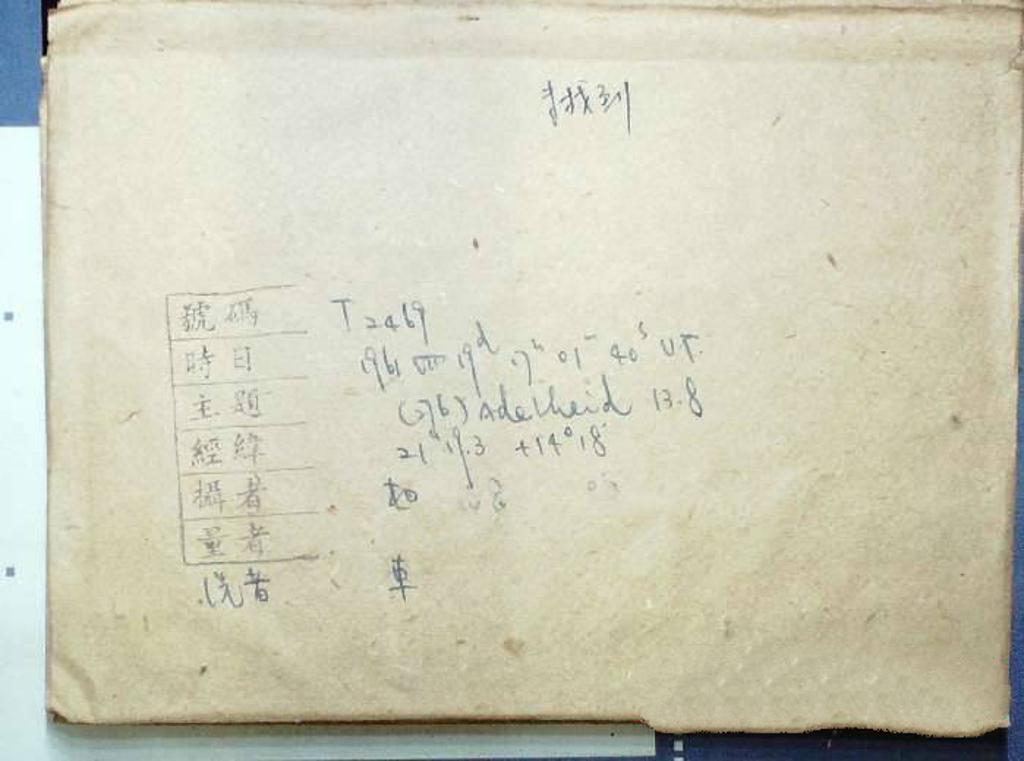 找到
號碼 T2469
時日 1961 VIII 19d 17h 01m 40s UT.
主題 (276) Adelheid 13.8
經緯 21h 19.3 +14°18'
攝者
量者
洗者 車